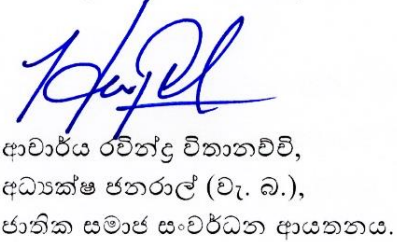 ආචාර්ය රවීන්ද්‍ර විතානච්චි,
අධ්‍යක්ෂ ජනරාල් (වැ. බ.),
ජාතික සමාජ සංවර්ධන ආයතනය.